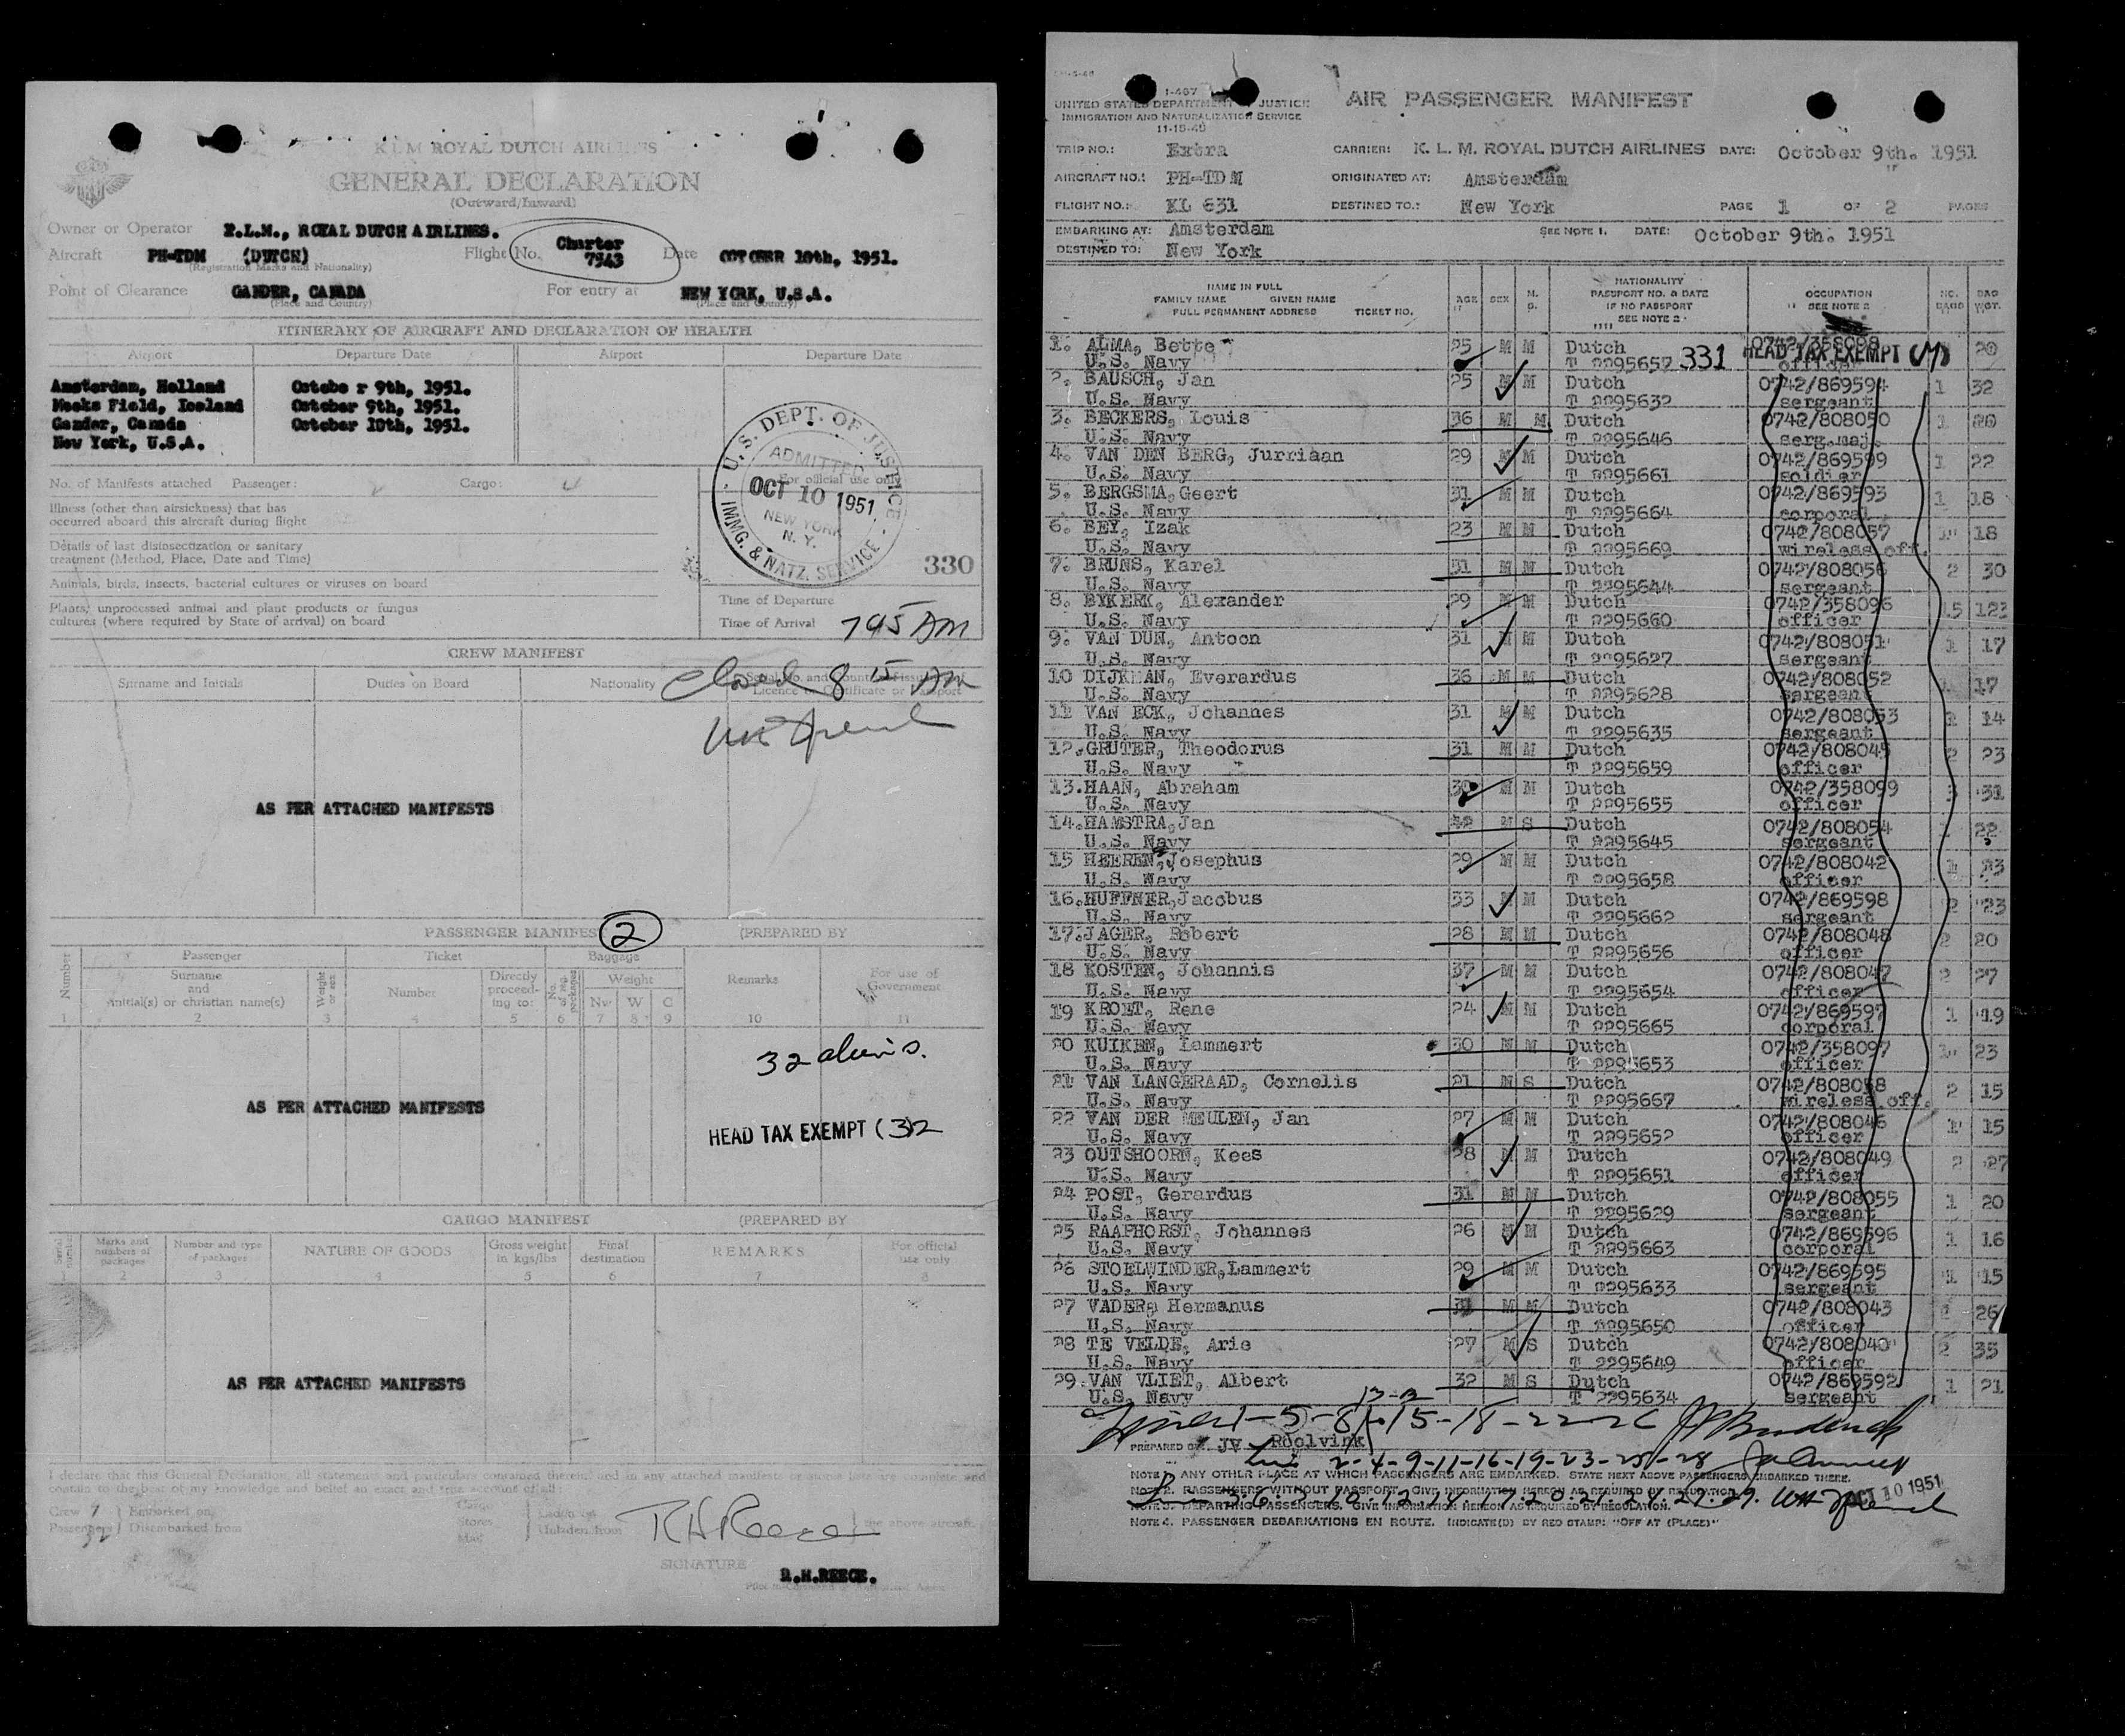 K L M ROYAL DUTCH AIRLINES
GENERAL DECLARATION
(Outward/Inward)
Owner or Operator K.L.M., ROYAL DUTCH AIRLINES.
Aircraft PH-TDM (DUTCH) Flight No. Charter 7543 Date OCTOBER 10th, 1951.
(Registration Marks and Nationality)
Point of Clearance GANDER, CANADA For entry at NEW YORK, U.S.A.
(Place and Country) (Place and Country)
ITINERARY OF AIRCRAFT AND DECLARATION OF HEALTH
Airport Departure Date Airport Departure Date
Amsterdam, Holland Octobe r 9th, 1951.
Meeks Field, Iceland October 9th, 1951.
Gander, Canada October 10th, 1951.
New York, U.S.A.
No. of Manifests attached Passenger: Cargo:
For official use only
Illness (other than airsickness) that has
occurred aboard this aircraft during flight
Details of last disinsectization or sanitary
treatment (Method, Place, Date and Time)
Animals, birds, insects, bacterial cultures or viruses on board
Plants, unprocessed animal and plant products or fungus
cultures (where required by State of arrival) on board
U.S. DEPT. OF JUSTICE
ADMITTED
OCT 10 1951
NEW YORK
N. Y.
IMMG. & NATZ. SERVICE
330
Time of Departure
Time of Arrival 745 AM
CREW MANIFEST
Closed 8 15 AM
Surname and Initials Duties on Board Nationality
AS PER ATTACHED MANIFESTS
PASSENGER MANIFEST 2 (PREPARED BY
Number Passenger Ticket Baggage
Surname and initial(s) or christian name(s) Weight or sex Number Directly proceeding to: No. of reg. packages Weight Remarks For use of Government
Nw W C
1 2 3 4 5 6 7 8 9 10 11
32 aliens.
AS PER ATTACHED MANIFESTS
HEAD TAX EXEMPT (32
CARGO MANIFEST (PREPARED BY
Serial number Marks and numbers of packages Number and type of packages NATURE OF GOODS Gross weight in kgs/lbs Final destination REMARKS For official use only
1 2 3 4 5 6 7 8
AS PER ATTACHED MANIFESTS
I declare that this General Declaration, all statements and particulars contained therein, and in any attached manifests or stores lists are complete, and
contain to the best of my knowledge and belief an exact and true account of all:
Crew 7 Embarked on Cargo Laden on
Passengers 32 Disembarked from Stores Mail Unladen from the above aircraft.
RHReece
SIGNATURE
R.H.REECE.
I-467
UNITED STATES DEPARTMENT OF JUSTICE
IMMIGRATION AND NATURALIZATION SERVICE
11-15-40
AIR PASSENGER MANIFEST
TRIP NO.: Extra CARRIER: K. L. M. ROYAL DUTCH AIRLINES DATE: October 9th. 1951
AIRCRAFT NO.: PH-TDM ORIGINATED AT: Amsterdam
FLIGHT NO.: KL 631 DESTINED TO.: New York PAGE 1 OF 2 PAGES
EMBARKING AT: Amsterdam SEE NOTE 1. DATE: October 9th. 1951
DESTINED TO: New York
NAME IN FULL
FAMILY NAME GIVEN NAME
FULL PERMANENT ADDRESS TICKET NO.
AGE SEX M. S.
NATIONALITY
PASSPORT NO. & DATE
IF NO PASSPORT
SEE NOTE 2
OCCUPATION
SEE NOTE 2
NO. BAGS BAG WGT.
1. ALMA, Bette 25 M M Dutch 0742/358098 20
U.S. Navy T 2295657 331 HEAD TAX EXEMPT officer
2. BAUSCH, Jan 25 M M Dutch 0742/869594 1 32
U.S. Navy T 2295632 sergeant
3. BECKERS, Louis 36 M M Dutch 0742/808050 1 20
U.S. Navy T 2295646 serg.maj.
4. VAN DEN BERG, Jurriaan 29 M M Dutch 0742/869599 1 22
U.S. Navy T 2295661 soldier
5. BERGSMA, Geert 31 M M Dutch 0742/869593 1 18
U.S. Navy T 2295664 corporal
6. BEY, Izak 23 M M Dutch 0742/808057 1 18
U.S. Navy T 2295669 wireless off.
7. BRUNS, Karel 31 M M Dutch 0742/808056 2 30
U.S. Navy T 2295644 sergeant
8. BYKERK, Alexander 29 M M Dutch 0742/358096 5 122
U.S. Navy T 2295660 officer
9. VAN DUN, Antoon 31 M M Dutch 0742/808051 1 17
U.S. Navy T 2295627 sergeant
10 DIJKMAN, Everardus 36 M M Dutch 0742/808052 17
U.S. Navy T 2295628 sergeant
11 VAN ECK, Johannes 31 M M Dutch 0742/808053 1 14
U.S. Navy T 2295635 sergeant
12. GRUTER, Theodorus 31 M M Dutch 0742/808045 2 23
U.S. Navy T 2295659 officer
13. HAAN, Abraham 30 M M Dutch 0742/358099 3 31
U.S. Navy T 2295655 officer
14. HAMSTRA, Jan M S Dutch 0742/808054 22
U.S. Navy T 2295645 sergeant
15 HEEREN, Josephus 29 M M Dutch 0742/808042 1 23
U.S. Navy T 2295658 officer
16. HUFFNER, Jacobus 33 M M Dutch 0742/869598 2 23
U.S. Navy T 2295662 sergeant
17. JAGER, Robert 28 M M Dutch 0742/808048 2 20
U.S. Navy T 2295656 officer
18 KOSTEN, Johannis 37 M M Dutch 0742/808047 2 27
U.S. Navy T 2295654 officer
19 KROET, Rene 24 M M Dutch 0742/869597 1 19
U.S. Navy T 2295665 corporal
20 KUIKEN, Lammert 30 M M Dutch 0742/358097 1 23
U.S. Navy T 2295653 officer
21 VAN LANGERAAD, Cornelis 21 M S Dutch 0742/808058 2 15
U.S. Navy T 2295667 wireless off.
22 VAN DER MEULEN, Jan 27 M M Dutch 0742/808046 1 15
U.S. Navy T 2295652 officer
23 OUTSHOORN, Kees 28 M M Dutch 0742/808049 2 27
U.S. Navy T 2295651 officer
24 POST, Gerardus 31 M M Dutch 0742/808055 1 20
U.S. Navy T 2295629 sergeant
25 RAAPHORST, Johannes 26 M M Dutch 0742/869596 1 16
U.S. Navy T 2295663 corporal
26 STOELWINDER, Lammert 29 M M Dutch 0742/869595 1 15
U.S. Navy T 2295633 sergeant
27 VADER, Hermanus 31 M M Dutch 0742/808043 26
U.S. Navy T 2295650 officer
28 TE VELDE, Arie 27 M S Dutch 0742/808040 2 35
U.S. Navy T 2295649 officer
29. VAN VLIET, Albert 32 M S Dutch 0742/869592 1 21
U.S. Navy T 2295634 sergeant
1-5-8-13-15-18-22-26
PREPARED BY: JV. Roolvink
2-4-9-11-16-19-23-25-28
NOTE 1. ANY OTHER PLACE AT WHICH PASSENGERS ARE EMBARKED. STATE NEXT ABOVE PASSENGERS EMBARKED THERE.
NOTE 2. PASSENGERS WITHOUT PASSPORT. GIVE INFORMATION HEREON AS REQUIRED BY REGULATION.
3.6.7.10.12.14.17.20.21.24.27.29.
OCT 10 1951
NOTE 3. DEPARTING PASSENGERS. GIVE INFORMATION HEREON AS REQUIRED BY REGULATION.
NOTE 4. PASSENGER DEBARKATIONS EN ROUTE. INDICATE(D) BY RED STAMP: "OFF AT (PLACE)"